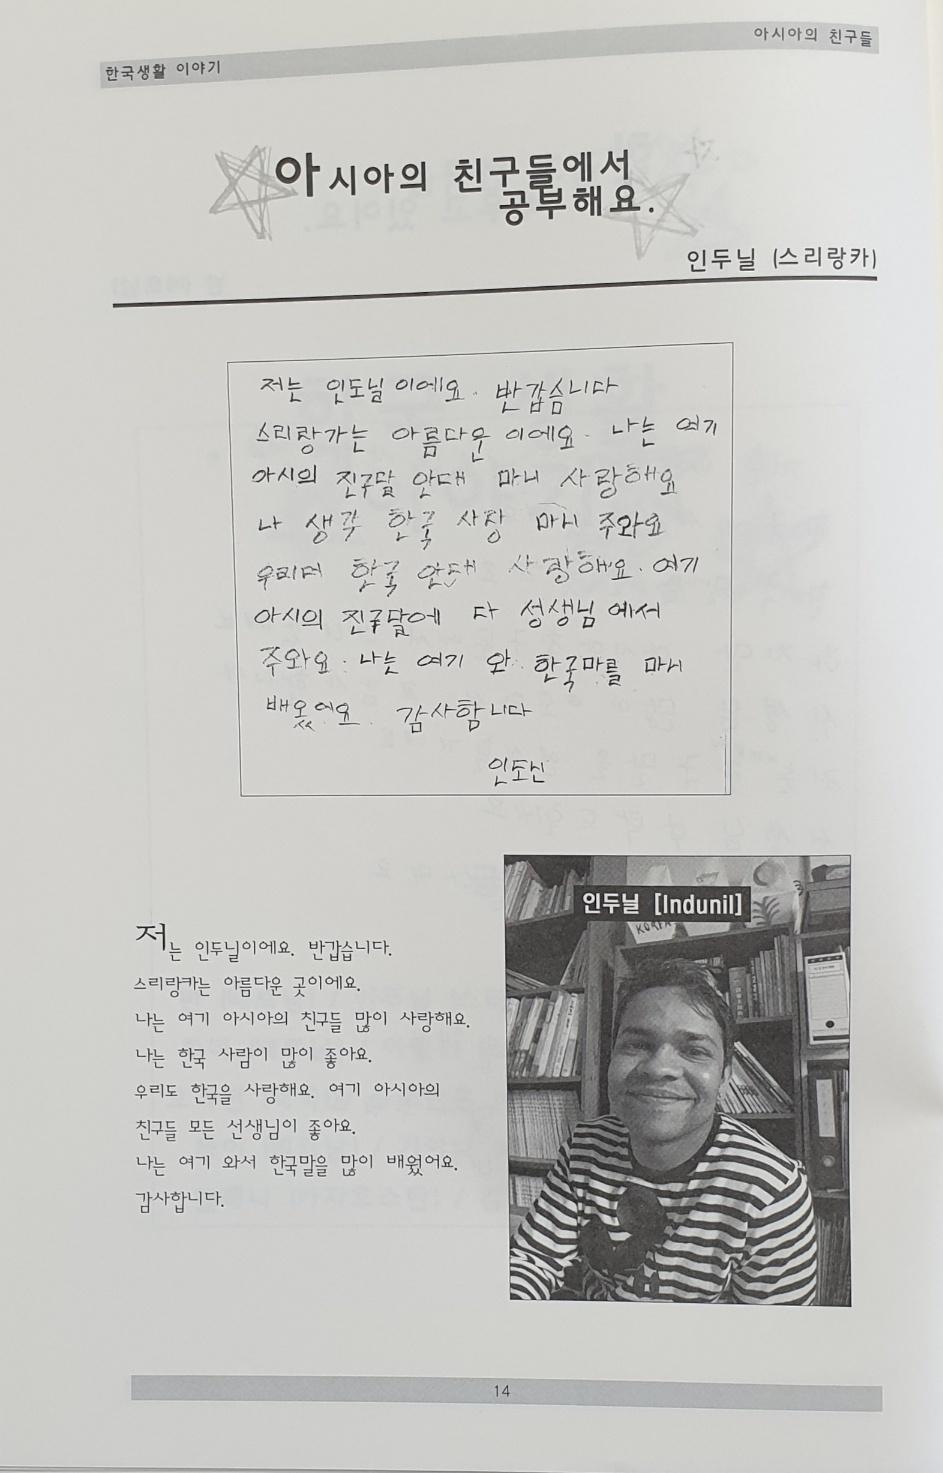 한국생활 이야기
아시아의 친구들
아시아의 친구들에서
공부해요.
인두닐 (스리랑카)
저는 인도닐 이에요. 반갑습니다
스리랑가는 아름다운 이에요. 나는 여기
아시의 진구달 안대 마니 사랑해요
나 생각 한국 사장 마니 주와요
우리더 한국 안대 사랑해요. 여기
아시의 진구달에 다 성생님 에서
주와요. 나는 여기 와. 한국마를 마니
배옸에요. 감사함니다
인도닌
인두닐 [Indunil]
KOREA
저는 인두닐이에요. 반갑습니다.
스리랑카는 아름다운 곳이에요.
나는 여기 아시아의 친구들 많이 사랑해요.
나는 한국 사람이 많이 좋아요.
우리도 한국을 사랑해요. 여기 아시아의
친구들 모든 선생님이 좋아요.
나는 여기 와서 한국말을 많이 배웠어요.
감사합니다.
14